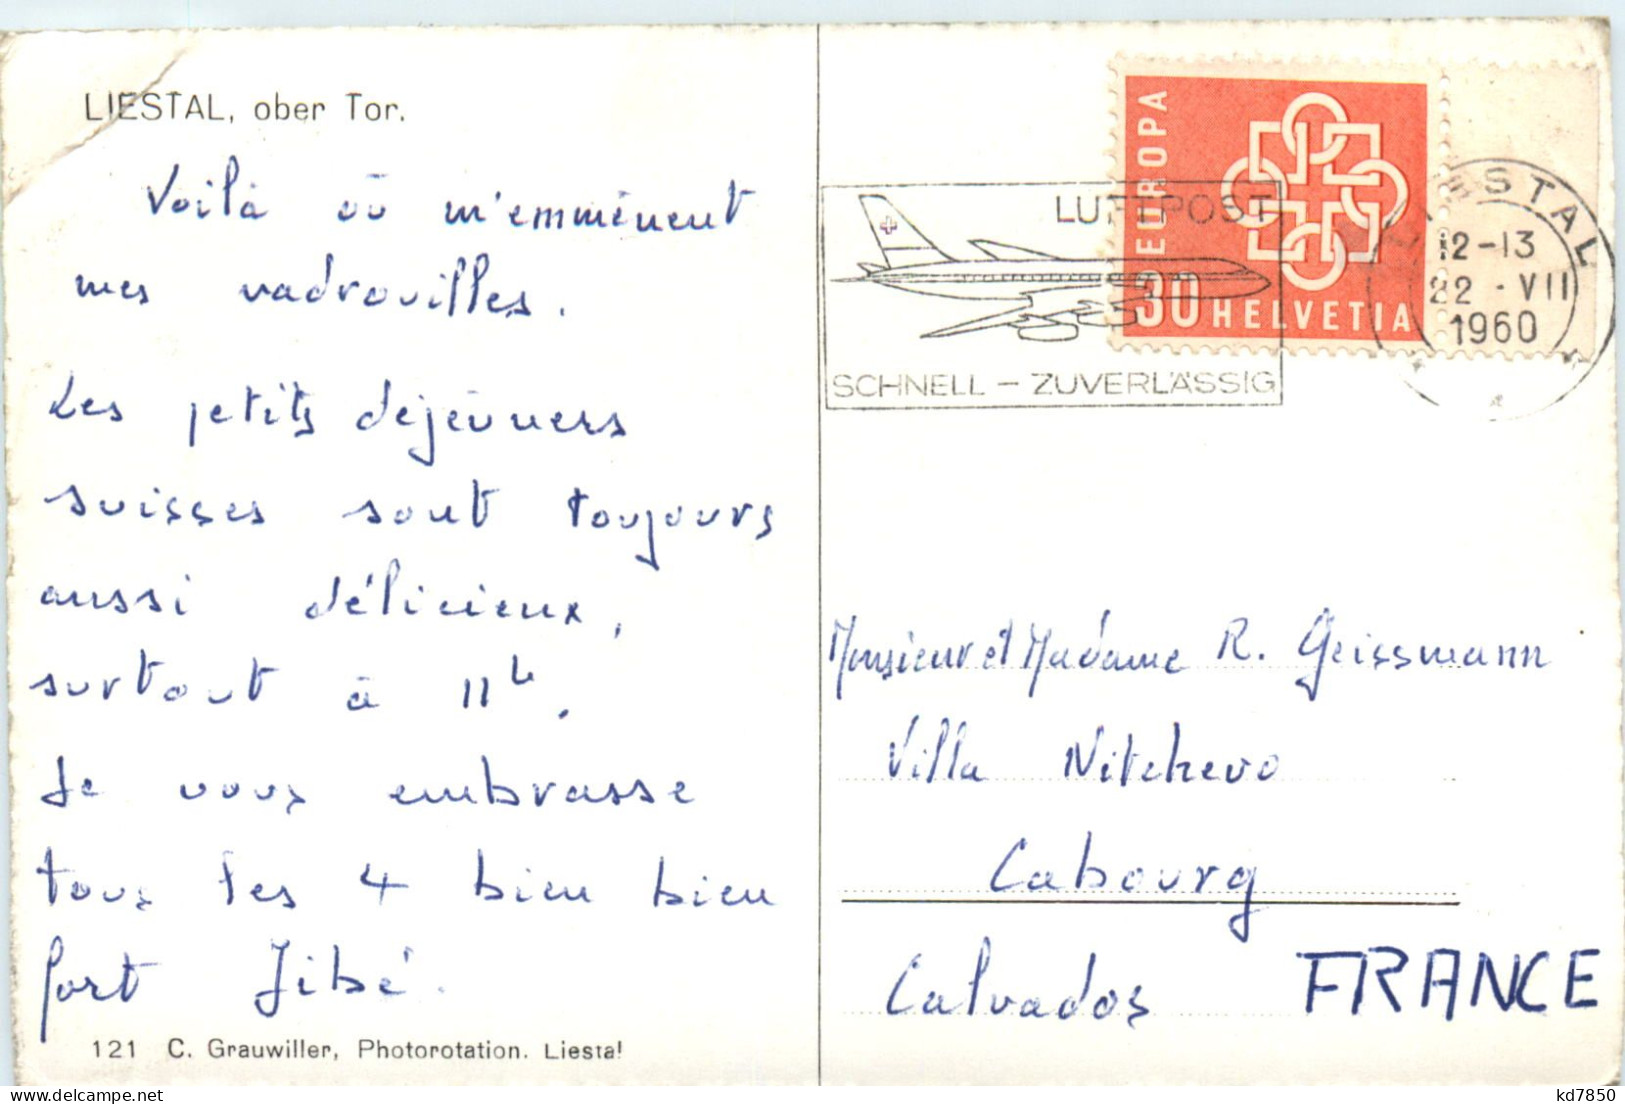 LIESTAL, ober Tor.
Voilà où m'emmènent
mes vadrouilles.
Les petits déjeuners
suisses sont toujours
aussi délicieux,
surtout à 11h.
Je vous embrasse
tous les 4 bien bien
fort Jibé.
121 C. Grauwiller, Photorotation. Liestal
EUROPA
30 HELVETIA
LUFTPOST
SCHNELL - ZUVERLÄSSIG
LIESTAL
12-13
22 · VII
1960
Monsieur et Madame R. Geissmann
Villa Nitchevo
Cabourg
Calvados FRANCE
kd7850